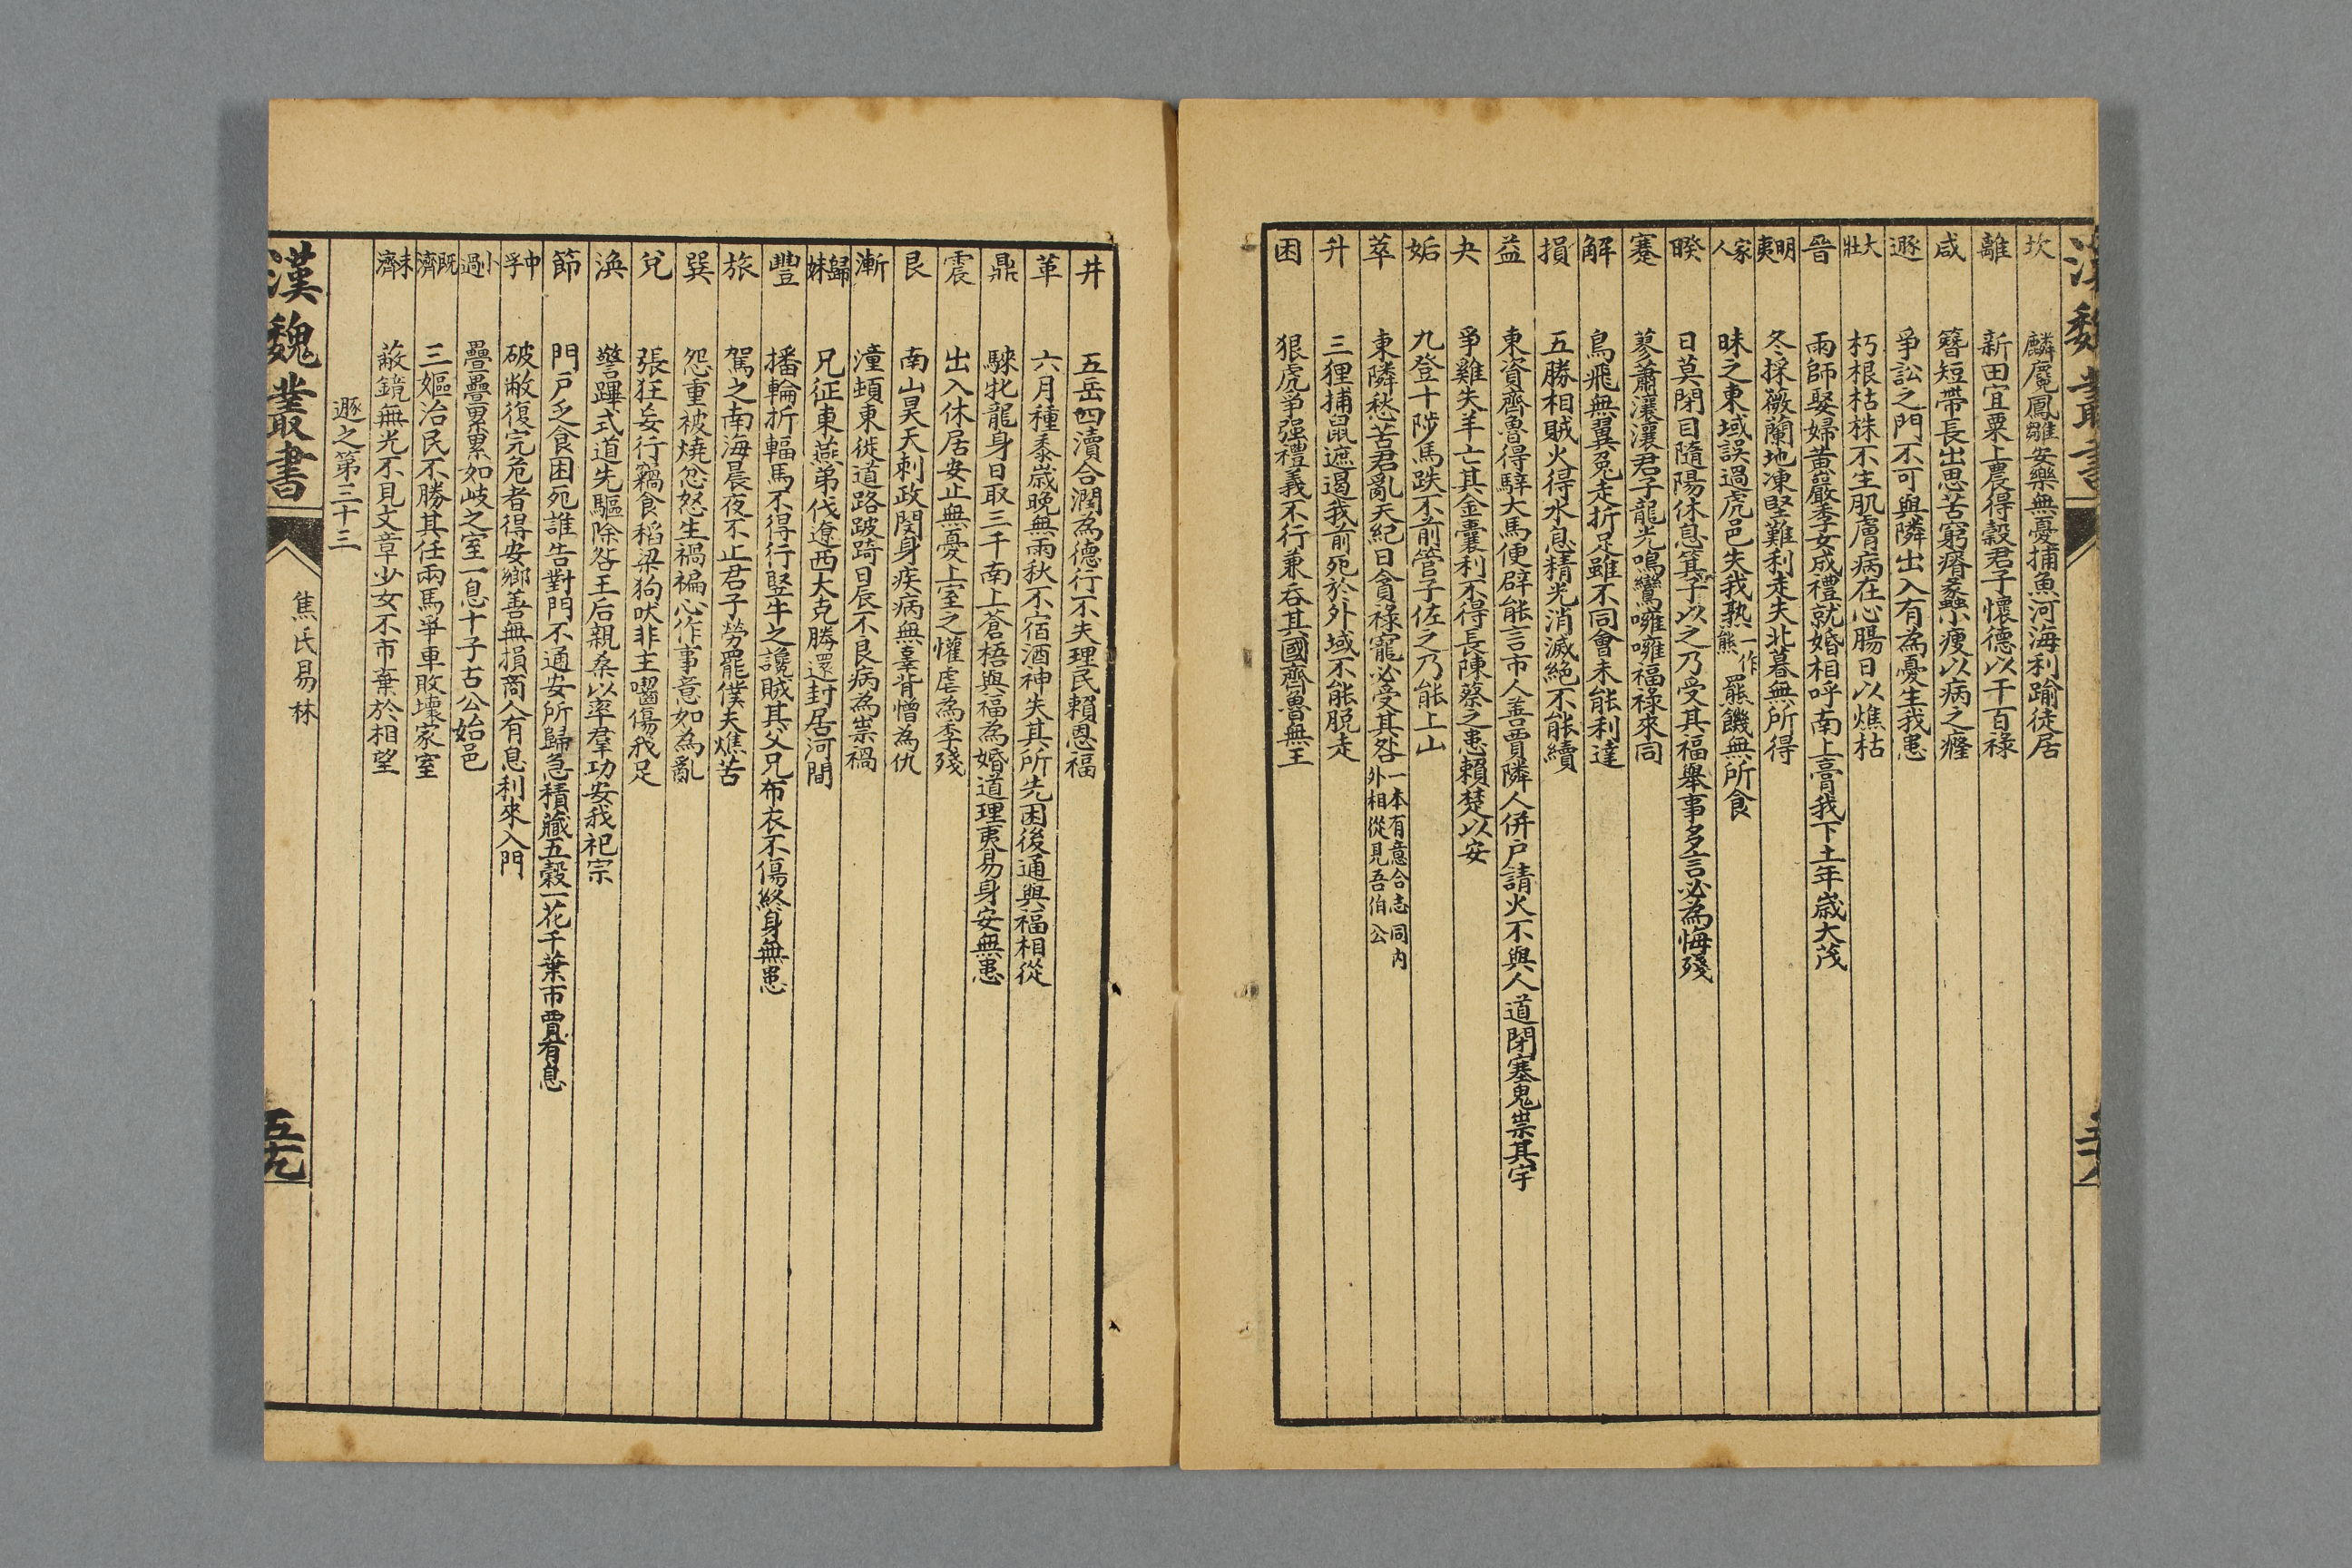 漢魏叢書
坎 麟魔鳳雛安樂無憂捕魚河海利踰徒居
離 新田宜粟上農得穀君子懷德以干百祿
咸 簪短帶長出思苦窮瘠蠡小瘦以病之癃
遯 爭訟之門不可與隣出入有為憂生我患
大壯 朽根枯株不生肌膚病在心腸日以燋枯
晉 雨師娶婦黃巖季女成禮就婚相呼南上膏我下土年歲大茂
明夷 冬採薇蘭地凍堅難利走夫北暮無所得
家人 昧之東域誤過虎邑失我熟一作熊羆饑無所食
睽 日莫閉目隨陽休息箕子以之乃受其福舉事多言必為悔殘
蹇 蓼蕭瀼瀼君子龍光鳴鸞噰噰福祿來同
解 鳥飛無翼兔走折足雖不同會未能利達
損 五勝相賊火得水息精光消滅絕不能續
益 東資齊魯得騂大馬便辟能言市人善賈隣人併戶請火不與人道閉塞鬼祟其宇
夬 爭雞失羊亡其金囊利不得長陳蔡之患賴楚以安
姤 九登十陟馬跌不前管子佐之乃能上山
萃 東隣愁苦君亂天紀日貪祿寵必受其咎一本有意合志同內外相從見吾伯公
升 三狸捕鼠遮遏我前死於外域不能脫走
困 狠虎爭强禮義不行兼吞其國齊魯無王
井 五岳四瀆合潤為德行不失理民賴恩福
革 六月種黍歲晚無雨秋不宿酒神失其所先困後通與福相從
鼎 騋牝龍身日取三千南上蒼梧與福為婚道理夷易身安無患
震 出入休居安止無憂上室之懽虐為季殘
艮 南山昊天刺政閔身疾病無辜背憎為仇
漸 潼頊東徙道路跛踦日辰不良病為祟禍
歸妹 兄征東燕弟伐遼西大克勝還封居河間
豐 播輪折輻馬不得行竪牛之讒賊其父兄布衣不傷終身無患
旅 駕之南海晨夜不止君子勞罷僕夫燋苦
巽 怨重被燒忿怒生禍褊心作事意如為亂
兌 張狂妄行竊食稻粱狗吠非主嚙傷我足
渙 警蹕式道先驅除咎王后親桑以率羣功安我祀宗
節 門戶乏食困死誰告對門不通安所歸急積藏五穀一花千葉市賈有息
中孚 破敝復完危者得安鄉善無損商人有息利來入門
小過 疊疊累累如岐之室一息十子古公始邑
既濟 三嫗治民不勝其任兩馬爭車敗壞家室
未濟 蔽鏡無光不見文章少女不市棄於相望
遯之第三十三
漢魏叢書 焦氏易林 五九